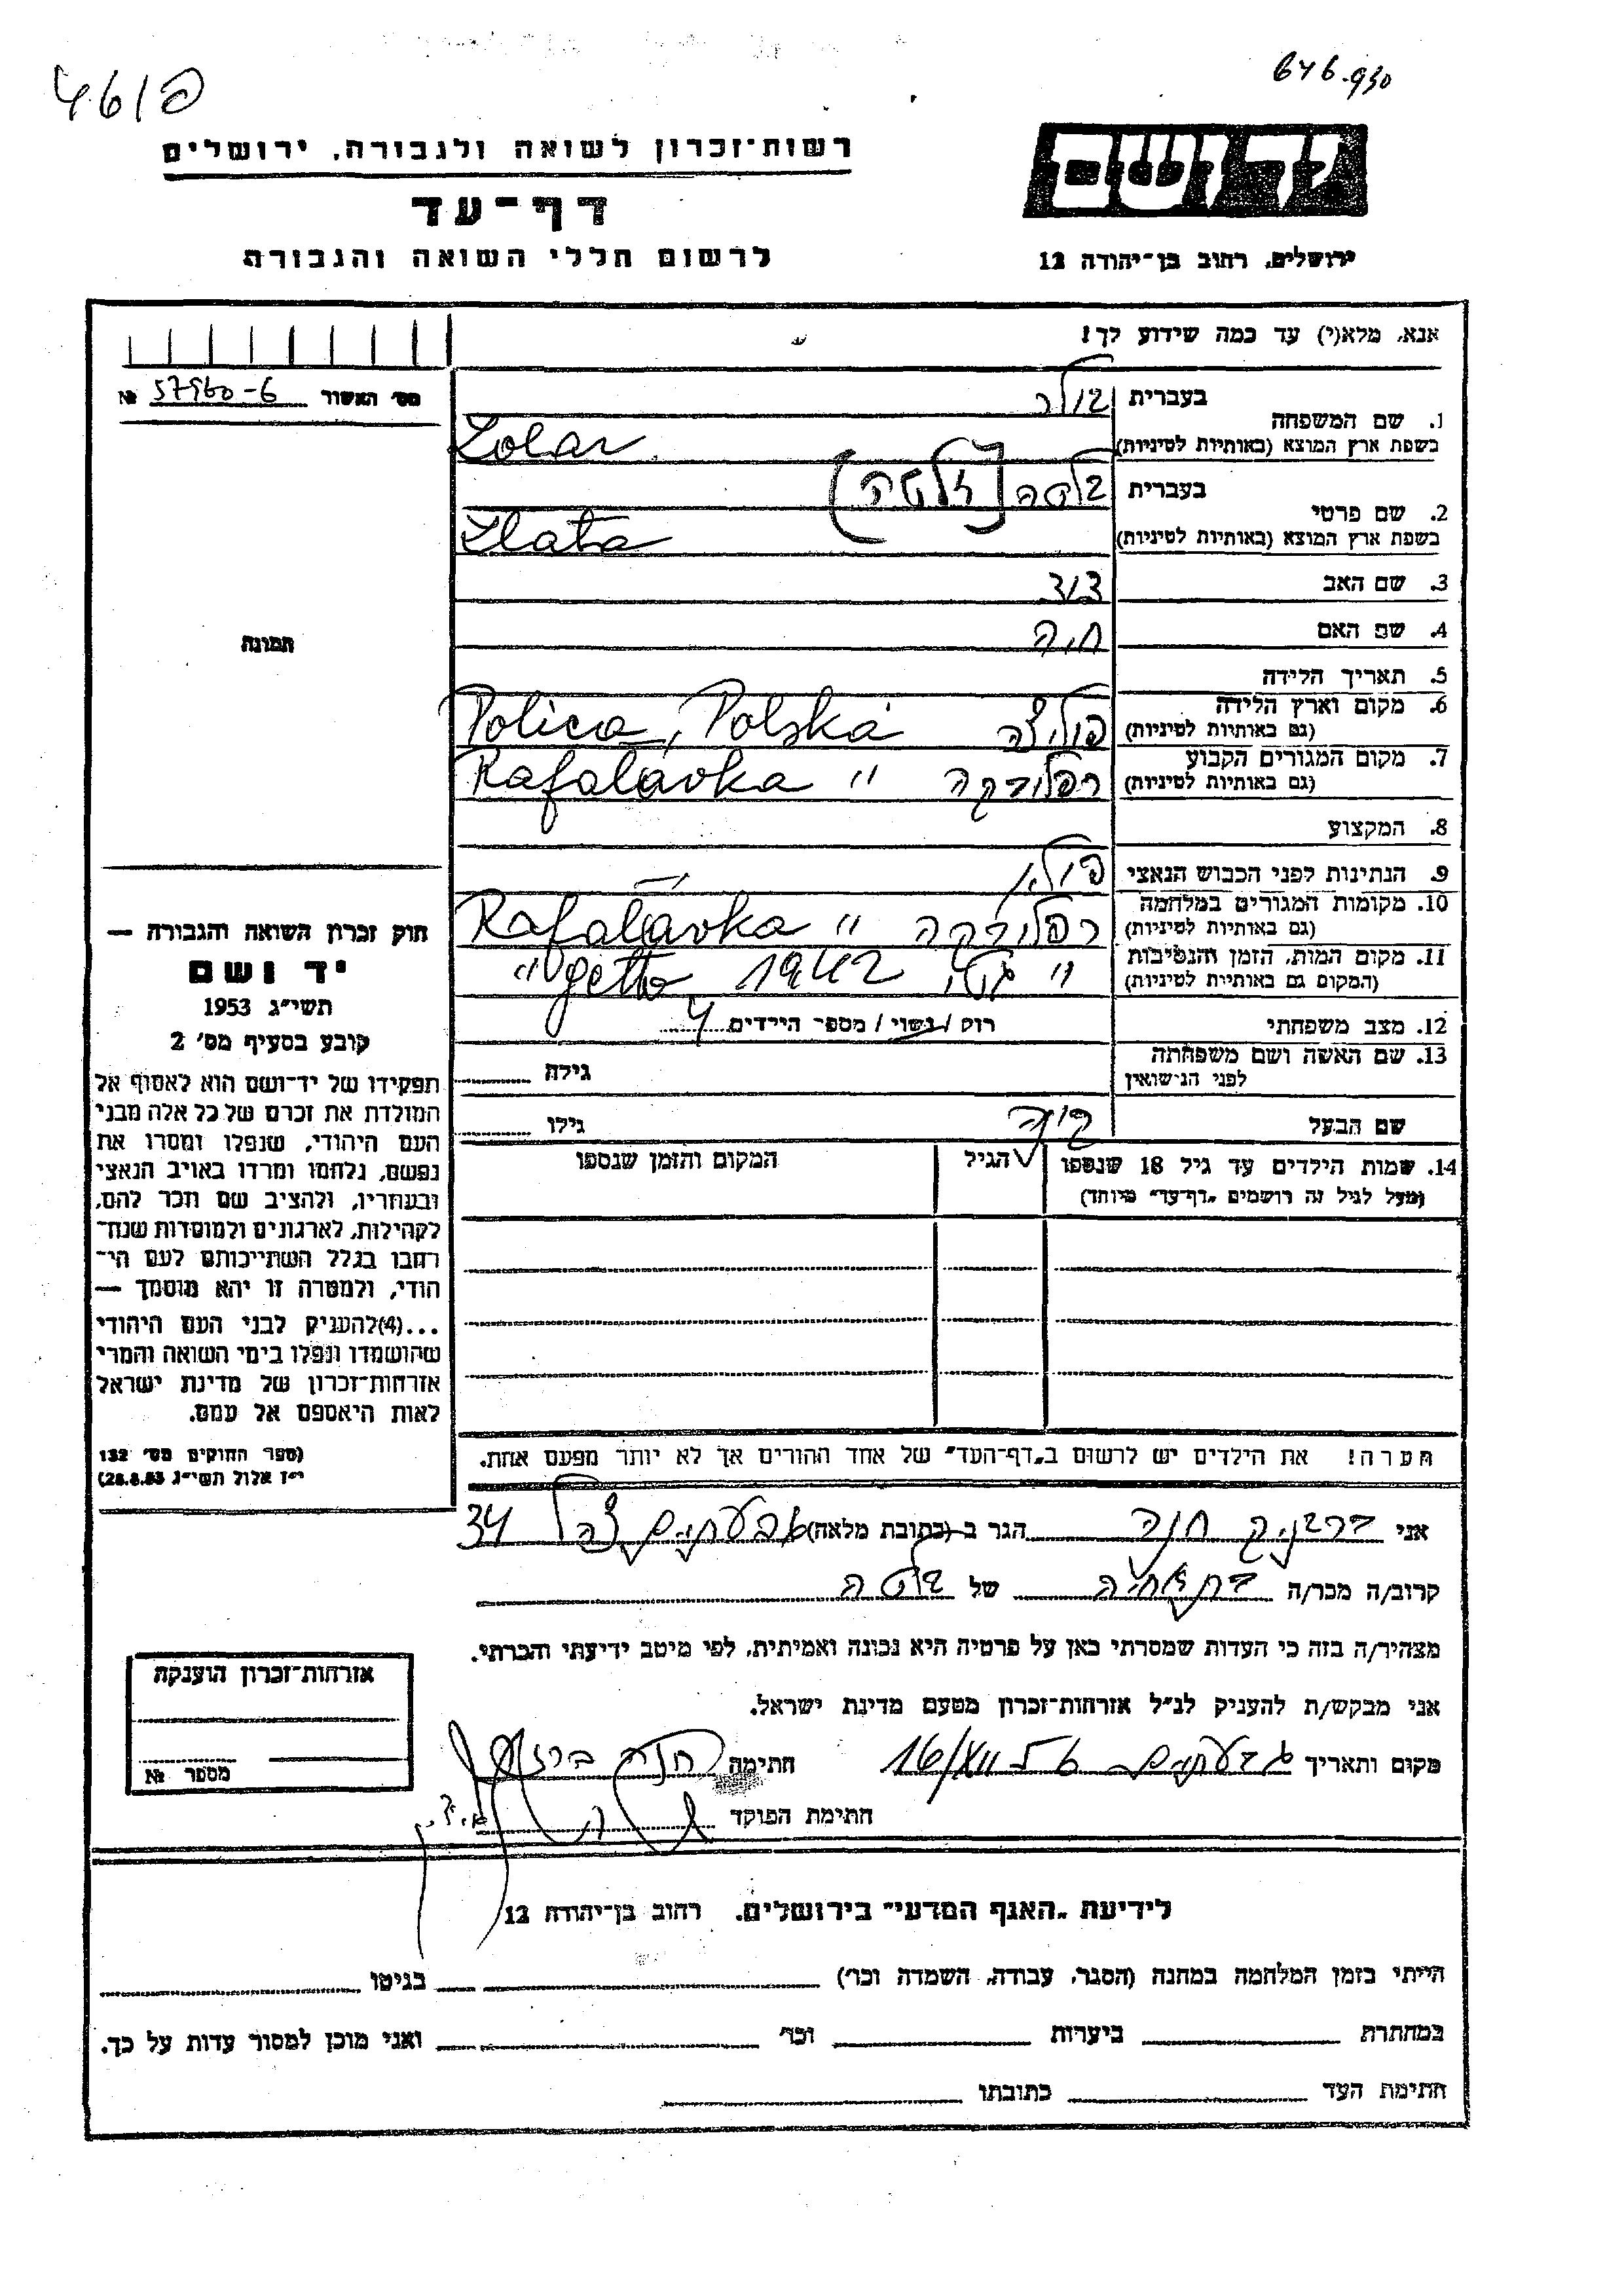 פ/461
646.930
יד ושם
רשות־זכרון לשואה ולגבורה, ירושלים
דף־עד
לרשום חללי השואה והגבורה
ירושלים, רחוב בן־יהודה 12
אנא, מלא(י) עד כמה שידוע לך!
מס׳ האשור 57960-6 №
1. שם המשפחה
בעברית זולר
בשפת ארץ המוצא (באותיות לטיניות) Zolar
2. שם פרטי
בעברית זלטה (זלטה)
בשפת ארץ המוצא (באותיות לטיניות) Zlata
3. שם האב דוד
4. שם האם חיה
תמונה
5. תאריך הלידה
6. מקום וארץ הלידה
(גם באותיות לטיניות) פוליצה Polica, Polska
7. מקום המגורים הקבוע
(גם באותיות לטיניות) רפלובקה " Rafalavka
8. המקצוע
9. הנתינות לפני הכבוש הנאצי פולני
10. מקומות המגורים במלחמה
(גם באותיות לטיניות) רפלובקה " Rafalavka
11. מקום המות, הזמן והנסיבות
(המקום גם באותיות לטיניות) " גטו 1942 getto "
12. מצב משפחתי רוק / נשוי / מספר הילדים 4
13. שם האשה ושם משפחתה
לפני הנישואין גילה
שם הבעל גילו
14. שמות הילדים עד גיל 18 שנספו הגיל המקום והזמן שנספו
(מעל לגיל זה רושמים „דף־עד” מיוחד)
הערה! את הילדים יש לרשום ב„דף־העד” של אחד ההורים אך לא יותר מפעם אחת.
חוק זכרון השואה והגבורה —
יד ושם
תשי״ג 1953
קובע בסעיף מס׳ 2
תפקידו של יד־ושם הוא לאסוף אל
המולדת את זכרם של כל אלה מבני
העם היהודי, שנפלו ומסרו את
נפשם, נלחמו ומרדו באויב הנאצי
ובעוזריו, ולהציב שם וזכר להם,
לקהילות, לארגונים ולמוסדות שנח־
רבו בגלל השתייכותם לעם הי־
הודי, ולמטרה זו יהא מוסמך —
...(4) להעניק לבני העם היהודי
שהושמדו ונפלו בימי השואה והמרי
אזרחות־זכרון של מדינת ישראל
לאות היאספם אל עמם.
(ספר החוקים מס׳ 132
י״ז אלול תשי״ג 28.8.53)
אני חנה הגר ב (כתובת מלאה) גבעתיים 34
קרוב/ה מכר/ה של זלטה
מצהיר/ה בזה כי העדות שמסרתי כאן על פרטיה היא נכונה ואמיתית, לפי מיטב ידיעתי והכרתי.
אני מבקש/ת להעניק לנ״ל אזרחות־זכרון מטעם מדינת ישראל.
מקום ותאריך גבעתיים 16/XII חתימה חנה
חתימת הפוקד
אזרחות־זכרון הוענקה
מספר №
לידיעת „האגף המדעי” בירושלים, רחוב בן־יהודה 12
הייתי בזמן המלחמה במחנה (הסגר, עבודה, השמדה וכו׳) בגיטו
במחתרת ביערות וכו׳ ואני מוכן למסור עדות על כך.
חתימת העד כתובתו